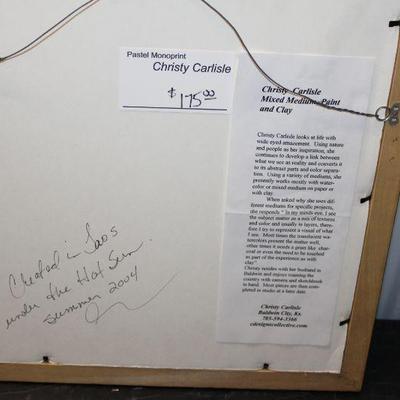 Pastel Monoprint
Christy Carlisle
$175.00
Christy Carlisle
Mixed Medium, Paint
and Clay
Christy Carlisle looks at life with
wide eyed amazement. Using nature
and people as her inspiration, she
continues to develop a link between
what we see as reality and converts it
to its abstract parts and color separa-
tion. Using a variety of mediums, she
presently works mostly with water-
color or mixed medium on paper or
with clay.
When asked why she uses dif-
ferent mediums for specific projects,
she responds " In my minds eye, I see
the subject matter as a mix of textures
and color and usually in layers, there-
fore I try to represent a visual of what
I see. Most times the translucent wa-
tercolors present the matter well,
other times it needs a grain like char-
coal or even the need to be touched
as part of the experience as with
clay"
Christy resides with her husband in
Baldwin and enjoys roaming the
country with camera and sketchbook
in hand. Most pieces are then com-
pleted in studio at a later date.
Christy Carlisle
Baldwin City, Ks.
785-594-3366
cdesignicollective.com
Created in Taos
under the Hot Sun.
Summer 2004